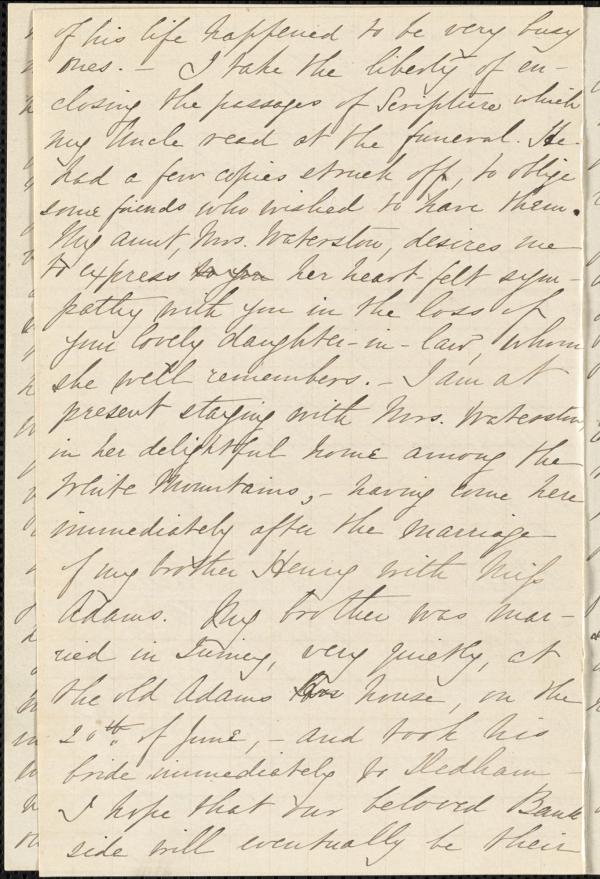 of his life happened to be very busy
ones. – I take the liberty of en-
closing the passages of Scripture which
my Uncle read at the funeral. He
had a few copies struck off, to oblige
some friends who wished to have them.
My aunt, Mrs. Waterston, desires me
to express to you her heart felt sym-
pathy with you in the loss of
your lovely daughter-in-law, whom
she well remembers. – I am at
present staying with Mrs. Waterston,
in her delightful home among the
White Mountains, – having come here
immediately after the marriage
of my brother Henry with Miss
Adams. My brother was mar-
ried in Quincy, very quietly, at
the old Adams house, on the
20th. of June, – and took his
bride immediately to Dedham –
I hope that our beloved Bank
side will eventually be their